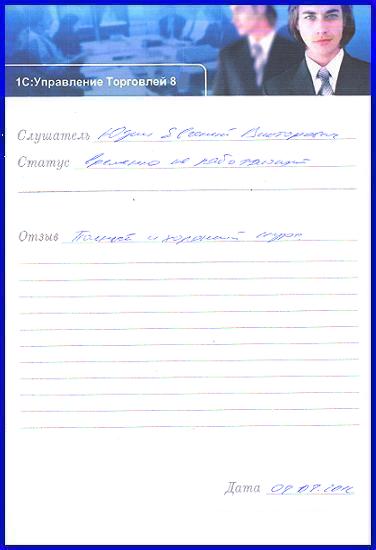 1С:Управление Торговлей 8
Слушатель Юдин Евгений Викторович
Статус временно не работающий
Отзыв Полный и хороший курс.
Дата 09.07.